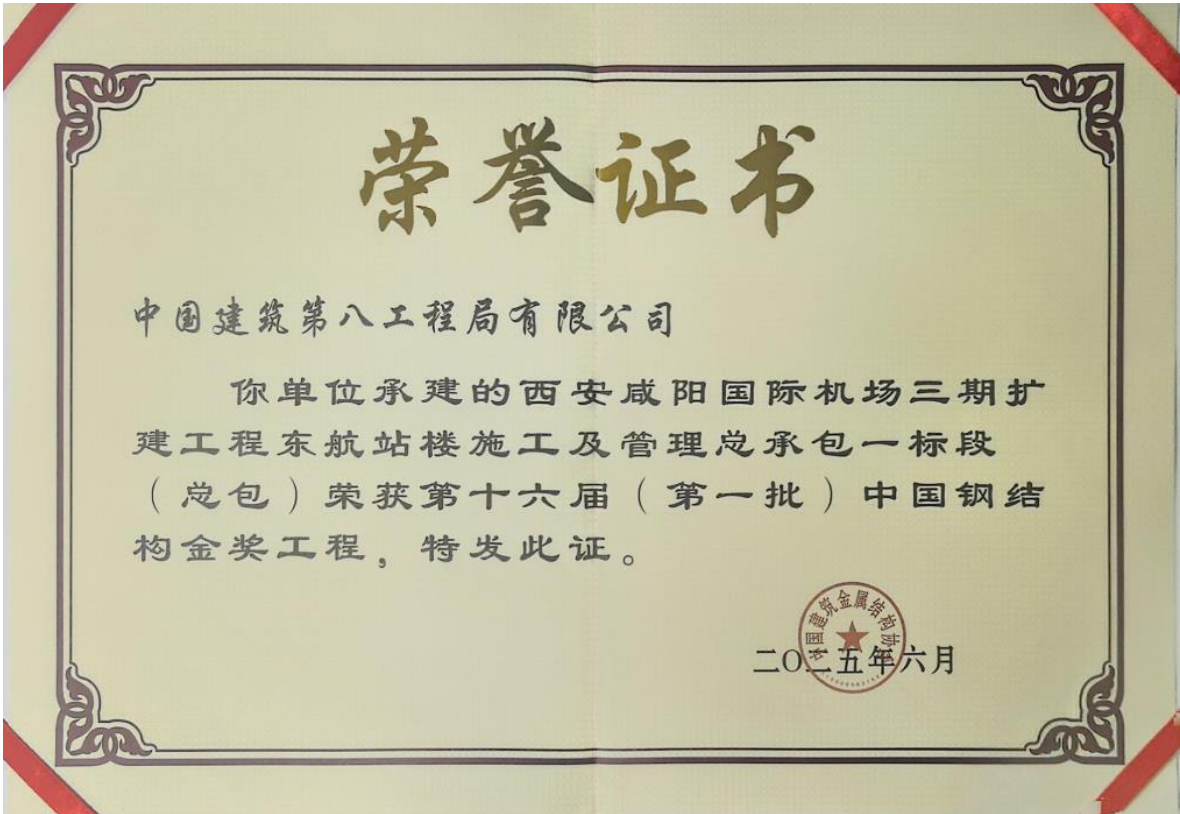 荣誉证书
中国建筑第八工程局有限公司
你单位承建的西安咸阳国际机场三期扩
建工程东航站楼施工及管理总承包一标段
（总包）荣获第十六届（第一批）中国钢结
构金奖工程，特发此证。
中国建筑金属结构协会
二〇二五年六月